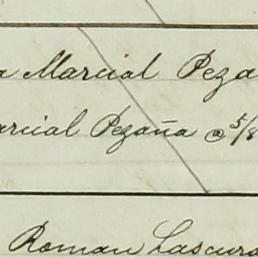 a Marcial Peza
arcial Pezaña @ 5/8
Roman Lascura